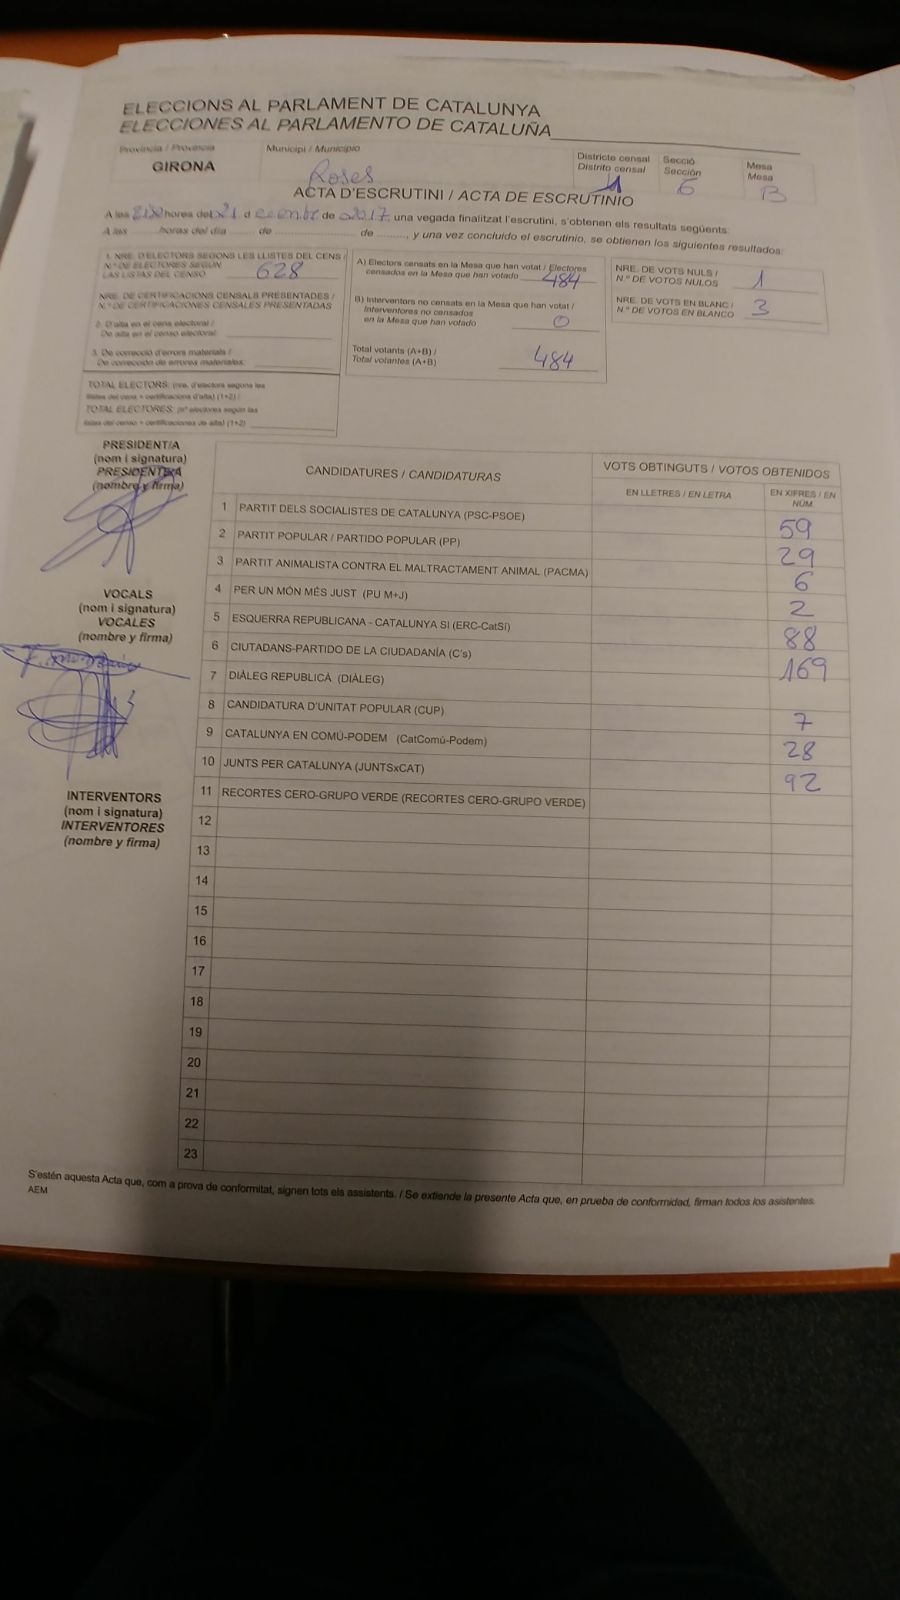 ELECCIONS AL PARLAMENT DE CATALUNYA
ELECCIONES AL PARLAMENTO DE CATALUÑA
Província / Provincia
GIRONA
Municipi / Municipio
Roses
Districte censal
Distrito censal
1
Secció
Sección
6
Mesa
Mesa
B
ACTA D'ESCRUTINI / ACTA DE ESCRUTINIO
A les hores del 21 de de 2017, una vegada finalitzat l'escrutini, s'obtenen els resultats següents:
A las horas del día de de , y una vez concluido el escrutinio, se obtienen los siguientes resultados:
1. NRE. D'ELECTORS SEGONS LES LLISTES DEL CENS /
N.º DE ELECTORES SEGÚN
LAS LISTAS DEL CENSO 628
NRE. DE CERTIFICACIONS CENSALS PRESENTADES /
N.º DE CERTIFICACIONES CENSALES PRESENTADAS
2. D'alta en el cens electoral /
De alta en el censo electoral:
3. De correcció d'errors materials /
De corrección de errores materiales:
TOTAL ELECTORS: (nre. d'electors segons les
llistes del cens + certificacions d'alta) (1+2) /
TOTAL ELECTORES: (nº electores según las
listas del censo + certificaciones de alta) (1+2)
A) Electors censats en la Mesa que han votat / Electores
censados en la Mesa que han votado 484
B) Interventors no censats en la Mesa que han votat /
Interventores no censados
en la Mesa que han votado 0
Total votants (A+B) /
Total votantes (A+B) 484
NRE. DE VOTS NULS /
N.º DE VOTOS NULOS 1
NRE. DE VOTS EN BLANC /
N.º DE VOTOS EN BLANCO 3
PRESIDENT/A
(nom i signatura)
PRESIDENTE/A
(nombre y firma)
VOCALS
(nom i signatura)
VOCALES
(nombre y firma)
INTERVENTORS
(nom i signatura)
INTERVENTORES
(nombre y firma)
CANDIDATURES / CANDIDATURAS
VOTS OBTINGUTS / VOTOS OBTENIDOS
EN LLETRES / EN LETRA
EN XIFRES / EN
NÚM.
1 PARTIT DELS SOCIALISTES DE CATALUNYA (PSC-PSOE) 59
2 PARTIT POPULAR / PARTIDO POPULAR (PP) 29
3 PARTIT ANIMALISTA CONTRA EL MALTRACTAMENT ANIMAL (PACMA) 6
4 PER UN MÓN MÉS JUST (PU M+J) 2
5 ESQUERRA REPUBLICANA - CATALUNYA SI (ERC-CatSí) 88
6 CIUTADANS-PARTIDO DE LA CIUDADANÍA (C's) 169
7 DIÀLEG REPUBLICÀ (DIÀLEG)
8 CANDIDATURA D'UNITAT POPULAR (CUP) 7
9 CATALUNYA EN COMÚ-PODEM (CatComú-Podem) 28
10 JUNTS PER CATALUNYA (JUNTSxCAT) 92
11 RECORTES CERO-GRUPO VERDE (RECORTES CERO-GRUPO VERDE)
12
13
14
15
16
17
18
19
20
21
22
23
S'estén aquesta Acta que, com a prova de conformitat, signen tots els assistents. / Se extiende la presente Acta que, en prueba de conformidad, firman todos los asistentes.
AEM